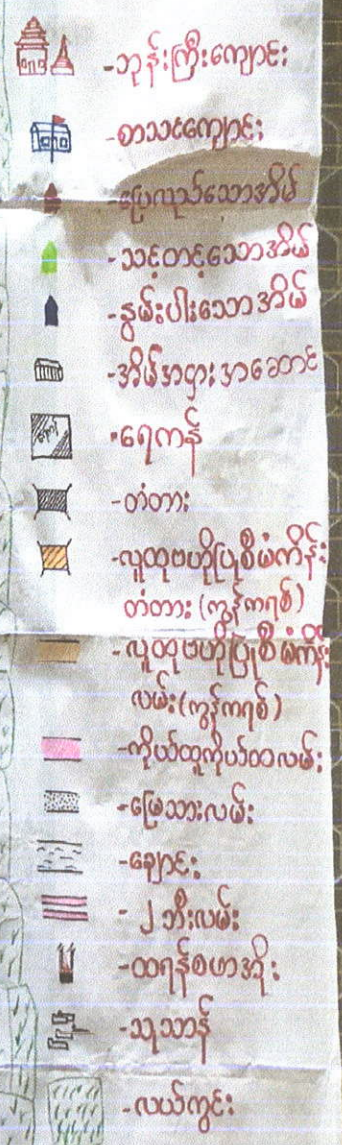 -ဘုန်းကြီးကျောင်း
-စာသင်ကျောင်း
-ပြေလည်သောအိမ်
-သင့်တင့်သောအိမ်
-နွမ်းပါးသောအိမ်
-အိမ်အငှားအဆောင်
-ရေကန်
-တံတား
-လူထုဗဟိုပြုစီမံကိန်း
တံတား (ကွန်ကရစ်)
-လူထုဗဟိုပြုစီမံကိန်း
လမ်း (ကွန်ကရစ်)
-ကိုယ်ထူကိုယ်ထလမ်း
-မြေသားလမ်း
-ချောင်း
-၂ ဘီးလမ်း
-ထရန်စဖာအိုး
-သုသာန်
-လယ်ကွင်း